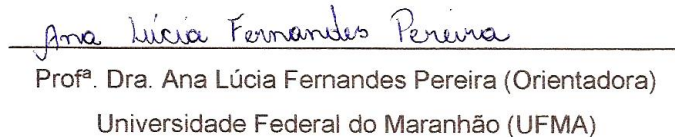 Ana Lúcia Fernandes Pereira
Profª. Dra. Ana Lúcia Fernandes Pereira (Orientadora)
Universidade Federal do Maranhão (UFMA)